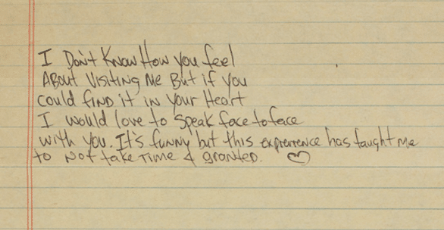 I Don't Know How you feel
About Visiting Me But if you
could find it in your Heart
I would love to Speak face to face
with you. It's funny but this experience has taught me
to not take time 4 granted. ♡